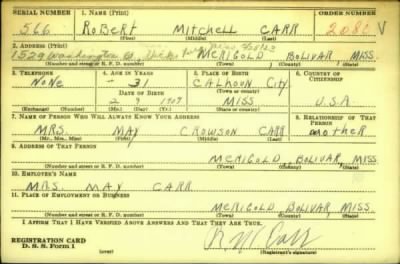 SERIAL NUMBER 1. NAME (Print) ORDER NUMBER
566 ROBERT MITCHELL CARR 2080 V
(First) (Middle) (Last)
2. ADDRESS (Print)
1529 Washington St. MERIGOLD BOLIVAR MISS.
(Number and street or R. F. D. number) (Town) (County) (State)
3. TELEPHONE 4. AGE IN YEARS 5. PLACE OF BIRTH 6. COUNTRY OF CITIZENSHIP
NONE 31 CALHOUN CITY
DATE OF BIRTH (Town or county)
2 9 1909 MISS U.S.A.
(Exchange) (Number) (Mo.) (Day) (Yr.) (State or country)
7. NAME OF PERSON WHO WILL ALWAYS KNOW YOUR ADDRESS 8. RELATIONSHIP OF THAT PERSON
MRS. MAY CROWSON CARR mother
(Mr., Mrs., Miss) (First) (Middle) (Last)
9. ADDRESS OF THAT PERSON
MERIGOLD, BOLIVAR, MISS
(Number and street or R. F. D. number) (Town) (County) (State)
10. EMPLOYER'S NAME
MRS. MAY CARR
11. PLACE OF EMPLOYMENT OR BUSINESS
MERIGOLD, BOLIVAR, MISS
(Number and street or R. F. D. number) (Town) (County) (State)
I AFFIRM THAT I HAVE VERIFIED ABOVE ANSWERS AND THAT THEY ARE TRUE.
REGISTRATION CARD R M Carr
D. S. S. Form 1 (over) (Registrant's signature)